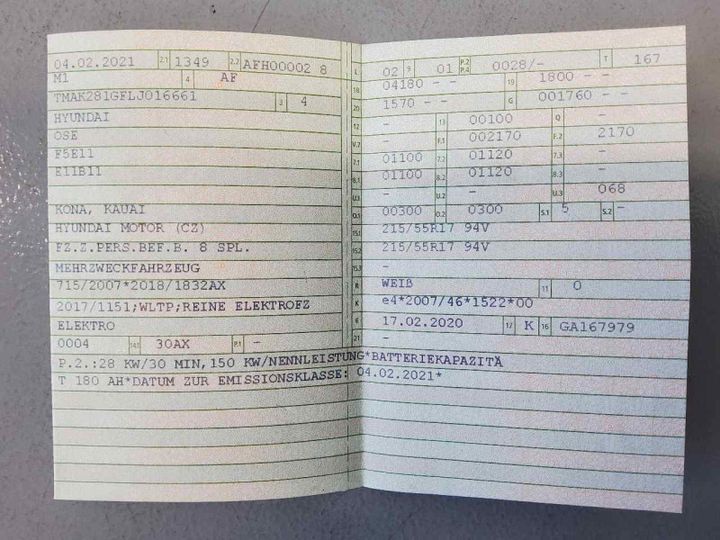 04.02.2021 2.1 1349 2.2 AFH00002 8
M1 4 AF
TMAK281GFLJ016661 3 4
HYUNDAI
OSE
F5E11
E11B11
KONA, KAUAI
HYUNDAI MOTOR (CZ)
FZ.Z.PERS.BEF.B. 8 SPL.
MEHRZWECKFAHRZEUG
715/2007*2018/1832AX
2017/1151;WLTP;REINE ELEKTROFZ
ELEKTRO
0004 14.1 30AX P.1 -
L 02 9 01 P.2 P.4 0028/- T 167
18 04180 - - 19 1800 - -
20 1570 - - G 001760 - -
12 - 13 00100 Q -
V.7 - F.1 002170 F.2 2170
7.1 01100 7.2 01120 7.3 -
8.1 01100 8.2 01120 8.3 -
U.1 - U.2 - U.3 068
O.1 00300 O.2 0300 S.1 5 S.2 -
15.1 215/55R17 94V
15.2 215/55R17 94V
15.3 -
R WEIß 11 0
K e4*2007/46*1522*00
6 17.02.2020 17 K 16 GA167979
21 -
P.2.:28 KW/30 MIN,150 KW/NENNLEISTUNG*BATTERIEKAPAZITÄ
T 180 AH*DATUM ZUR EMISSIONSKLASSE: 04.02.2021*